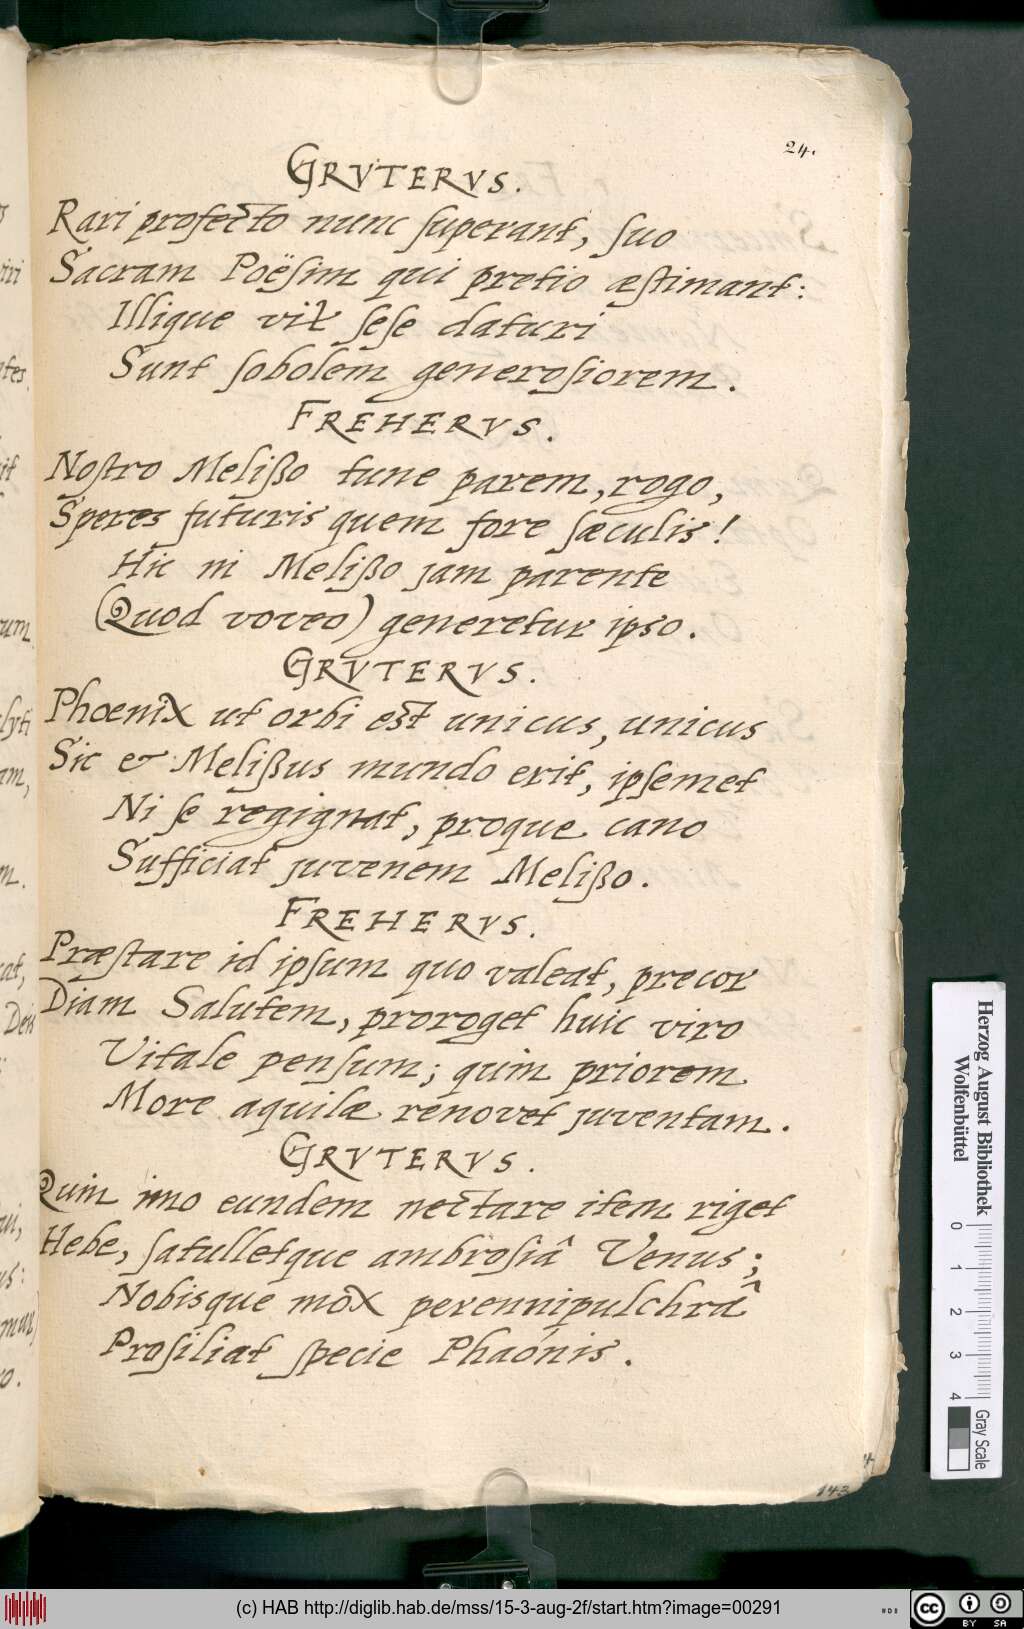 24.
GRVTERVS.
Rari profecto nunc superant, suo
Sacram Poësim qui pretio æstimant:
Illique vix sese daturi
Sunt sobolem generosiorem.
FREHERVS.
Nostro Melißo tune parem, rogo,
Speres futuris quem fore sæculis!
Hic ni Melißo jam parente
(Quod voveo) generetur ipso.
GRVTERVS.
Phoenix ut orbi est unicus, unicus
Sic & Melißus mundo erit, ipsemet
Ni se regignat, proque cano
Sufficiat juvenem Melißo.
FREHERVS.
Præstare id ipsum quo valeat, precor
Diam Salutem, proroget huic viro
Vitale pensum; quin priorem
More aquilæ renovet juventam.
GRVTERVS.
Quin imo eundem nectare item riget
Hebe, satulletque ambrosiâ Venus;
Nobisque mox perennipulchrâ
Prosiliat specie Phaónis.
143
Herzog August Bibliothek
Wolfenbüttel
0 1 2 3 4
Gray Scale
(c) HAB http://diglib.hab.de/mss/15-3-aug-2f/start.htm?image=00291
cc BY SA